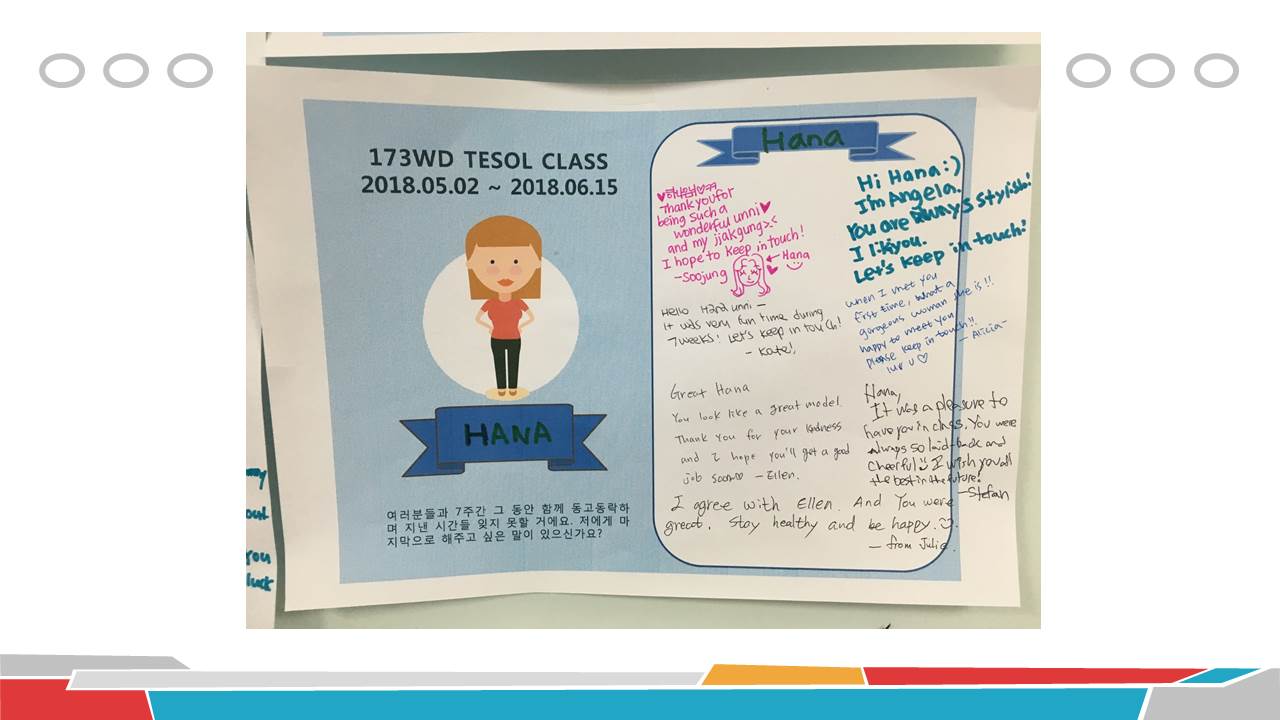 173WD TESOL CLASS
2018.05.02 ~ 2018.06.15
HANA
여러분들과 7주간 그 동안 함께 동고동락하
며 지낸 시간들 잊지 못할 거에요. 저에게 마
지막으로 해주고 싶은 말이 있으신가요?
Hana
Thank you for
being such a
wonderful unni
and my jjakgung>.<
I hope to keep in touch!
-Soojung
Hana
Hi Hana:)
I'm Angela.
You are always stylish!
I like you.
Let's keep in touch!
Hello Hana unni —
It was very fun time during
7 weeks! Let's keep in touch!
- Kate!
When I met you
first time, what a
gorgeous woman she is!!
happy to meet you
please keep in touch!!
luv u ♡
— Alicia —
Great Hana
You look like a great model.
Thank you for your kindness
and I hope you'll get a good
job soon♡ — Ellen.
Hana,
It was a pleasure to
have you in class. You were
always so laid-back and
cheerful I wish you all
the best in the future!
-Stefan
I agree with Ellen. And You were
great. Stay healthy and be happy.♡.
— from Julie.
out
you
luck